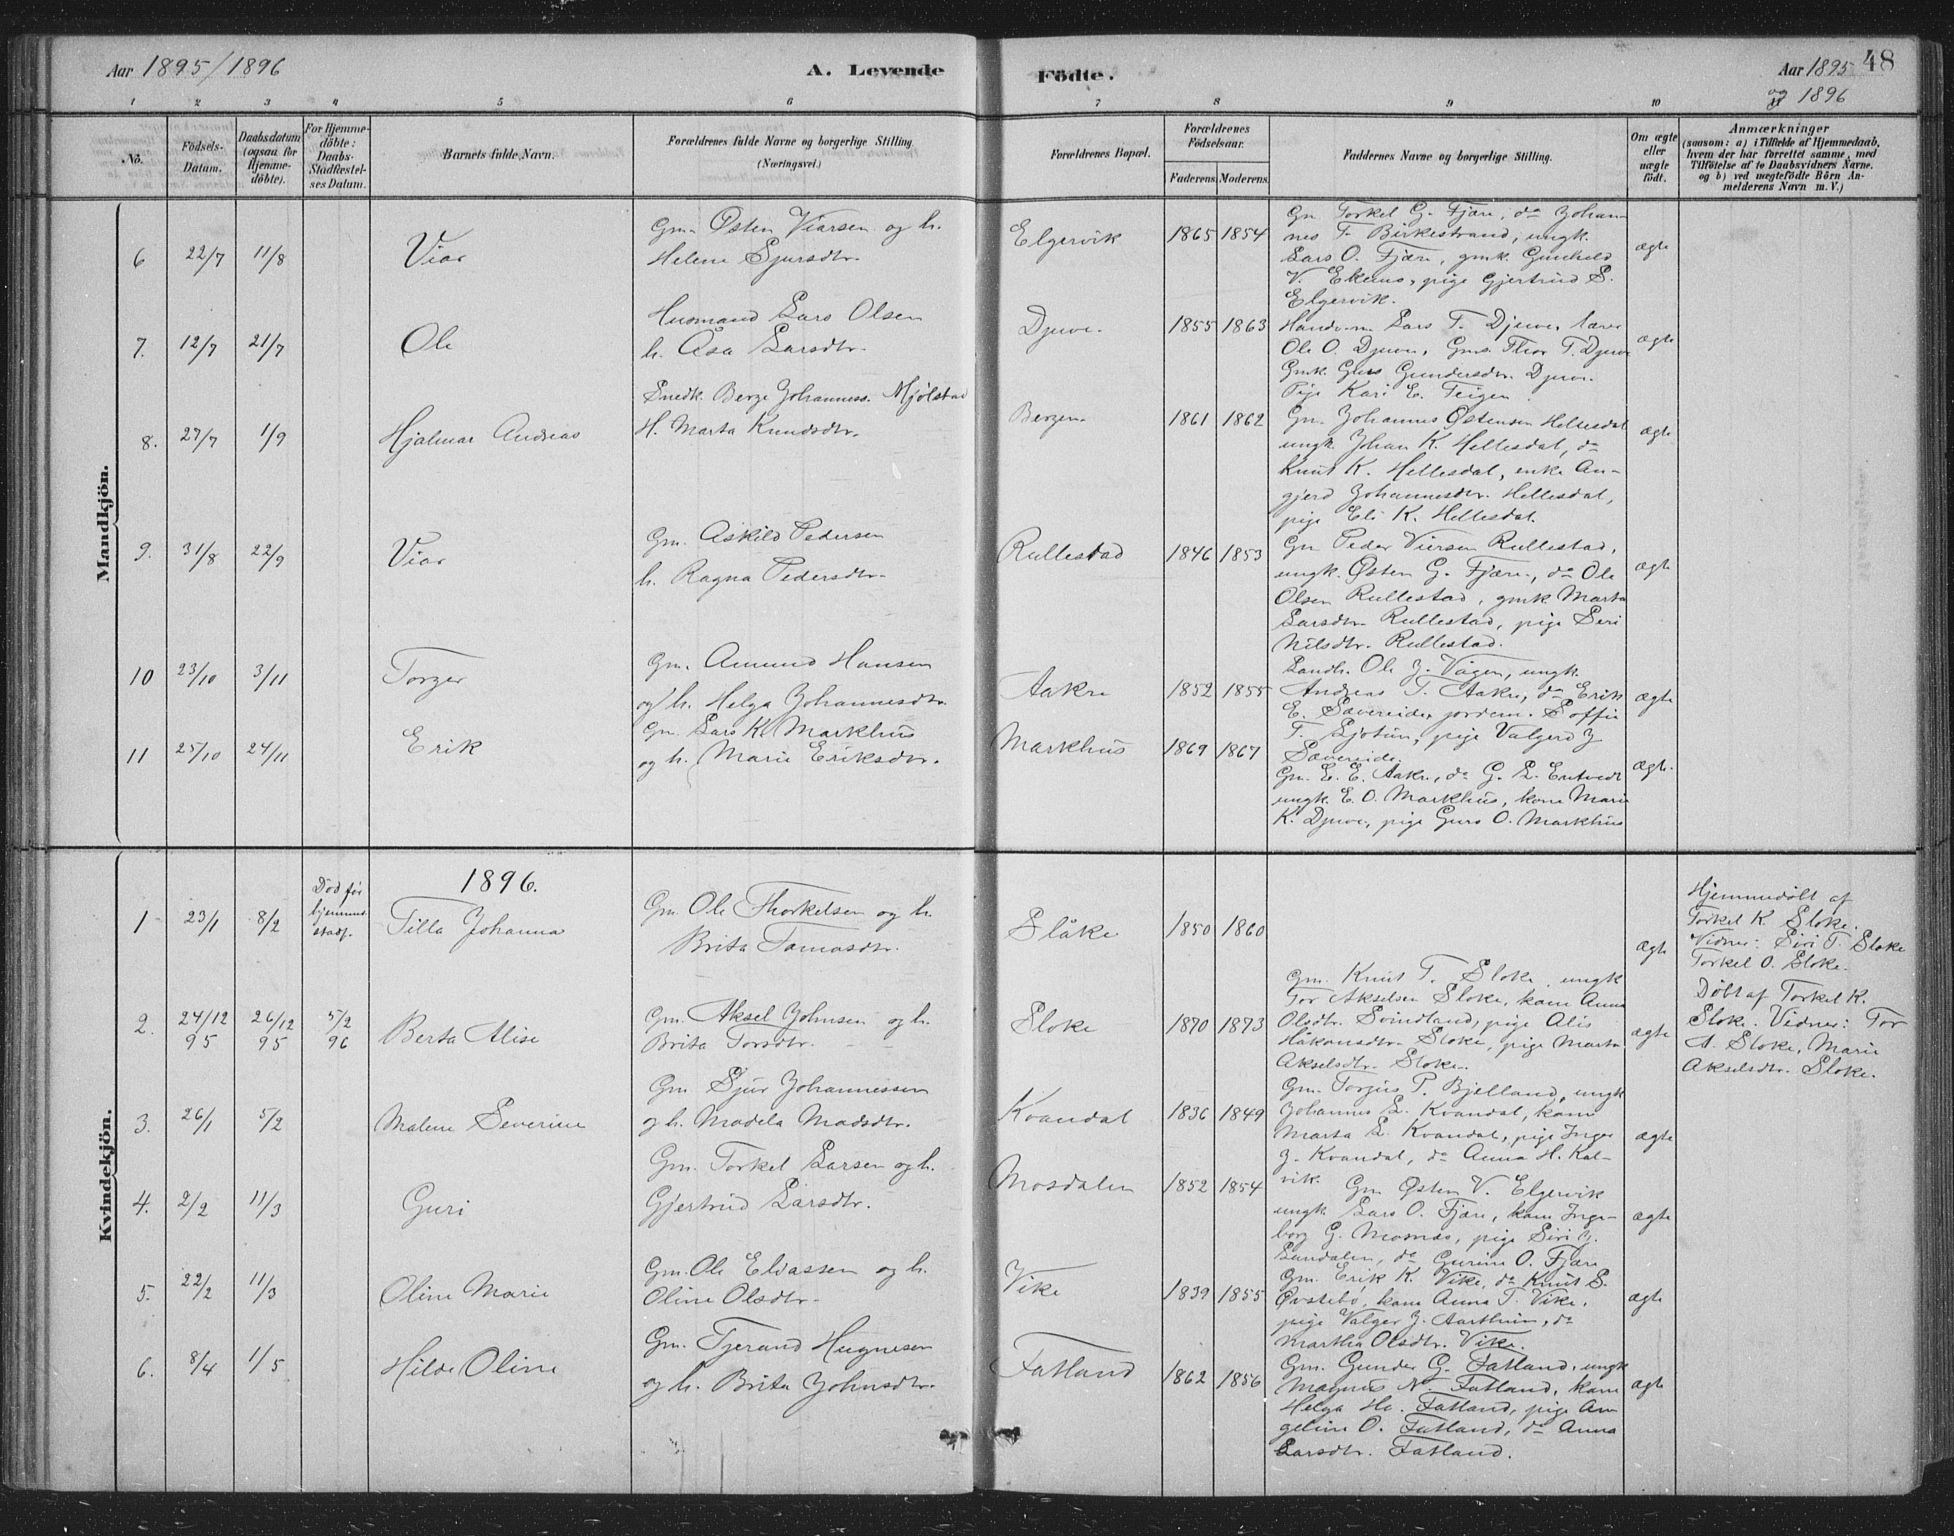 Aar 1895/1896
A. Levende
Födte.
Aar 1895 48
og 1896
1 2 3 4 5 6 7 8 9 10 11
No.
Födsels-
Datum.
Daabsdatum
(ogsaa for
Hjemme-
döbte).
For Hjemme-
döbte:
Daabs-
Stadfæstel-
ses Datum.
Barnets fulde Navn.
Forældrenes fulde Navne og borgerlige Stilling
(Næringsvei.)
Forældrenes Bopæl.
Forældrenes
Födselsaar.
Faderens. Moderens.
Faddernes Navne og borgerlige Stilling.
Om ægte
eller
uægte
födt.
Anmærkninger
(saasom: a) i Tilfælde af Hjemmedaab,
hvem der har forrettet samme, med
Tilföielse af to Daabsvidners Navne.
og b) ved uægtefödte Börn An-
melderens Navn m. V.)
Mandkjön.
6 22/7 11/8 Viar
Gm. Østen Viarsen og h.
Helene Sjursdtr.
Elgervik 1865 1854
Gm Torkel G. Fjære, do Johan-
nes T. Birkestrand, ungk.
Lars O. Fjære, gmk. Gunhild
V. Ekenes, pige Gjertrud S.
Elgervik.
ægte
7. 12/7 21/7 Ole
Husmand Lars Olsen
h. Åsa Larsdtr.
Djuve. 1855 1863
Lars T. Djuve,
Ole O. Djuve, Gm. Thor T. Djuve
Gmk. Guro Gundersdtr. Djuve.
Pige Kari E. Teigen.
ægte
8. 27/7 1/9 Hjalmar Andreas
Snedk. Berge Johanness. Mjölstad
H. Marta Knudsdtr.
Bergen 1861 1862
Gm. Johannes Østensen Hellesdal
ungk. Johan K. Hellesdal, do
Knut K. Hellesdal, enke An-
gjerd Johannesdtr. Hellesdal,
pige Eli K. Hellesdal.
ægte
9. 31/8 22/9 Viar
Gm. Askild Pedersen
h. Ragna Pedersdtr.
Rullestad 1846 1853
Gm Peder Viersen Rullestad,
ungk. Østen G. Fjære, do Ole
Olsen Rullestad, gmk Marta
Larsdtr. Rullestad, pige Seri
Nilsdtr. Rullestad.
ægte
10 23/10 3/11 Torger
Gm. Amund Hansen
og h. Helga Johannesdtr.
Aakre 1852 1855
Landh. Ole J. Vågen, ungk.
Andreas T. Aakre, do Erik
E. Sævereide, jordem. Soffie
T. Ljotun, pige Valgerd J
Sævereide.
ægte
11 25/10 24/11 Erik
Gm. Lars K. Markhus
og h. Marie Eriksdtr.
Markhus 1869 1867
Gm. E. E. Aakre, do G. L. Entvedt
ungk. E. O. Markhus, kone Marie
K. Djuve, pige Guro O. Markhus
ægte.
Kvindekjön.
1896.
1 23/1 8/2 Död før
hjemme
stadf.
Tilla Johanna
Gm. Ole Thorkelsen og h.
Brita Tomasdtr.
Slåke 1850 1860
ægte
Hjemmedölt af
Torkel K Sloke.
Vidner: Siri T. Sloke
Torkel O. Sloke.
2. 24/12 95 26/12 95 5/2 96 Berta Alise
Gm. Aksel Johnsen og h.
Brita Torsdtr.
Sloke 1870 1873
Gm. Knut T. Sloke, ungk
Tor Akselsen Sloke, kone Anna
Olsdtr. Svindland, pige Alis
Håkonsdtr. Sloke, pige Marta
Akselsdtr. Sloke.
ægte
Döbt af Torkel K.
Sloke. Vidner: Tor
A. Sloke, Marie
Akselsdtr. Sloke.
3. 26/1 5/2 Malene Severine
Gm Sjur Johannessen
og h. Madela Madsdtr.
Kvandal 1836 1849
Gm. Torgius P. Bjelland, ungk
Johannes L. Kvandal, kone
Marta L. Kvandal, pige Inger
J. Kvandal, do Anna H. Kal-
vik.
ægte
4. 2/2 11/3 Guri
Gm. Torkel Larsen og h.
Gjertrud Larsdtr.
Mosdalen 1852 1854
Gm Østen V. Elgervik
ungk Lars O. Fjære, kone Inge-
borg G. Mosnes, pige Siri J.
Sandalen, do Gurine O. Fjære
ægte
5. 22/2 11/3 Oline Marie
Gm. Ole Eliassen og h.
Oline Olsdtr.
Vike 1839 1855
Gm. Erik K. Vike, do Knut S.
Østebö, kone Anna T. Vike,
pige Valger J. Aarthun, do
Martha Olsdtr. Vike.
ægte
6. 8/4 1/5 Hilde Oline
Gm. Tjerand Hugnesen
og h. Brita Johnsdtr.
Fatland 1862 1856
Gm. Gunder G. Fatland, ungk
Magnus N. Fatland, kone
Helga H. Fatland, pige An-
geline O. Fatland, do Anna
Larsdtr. Fatland.
ægte